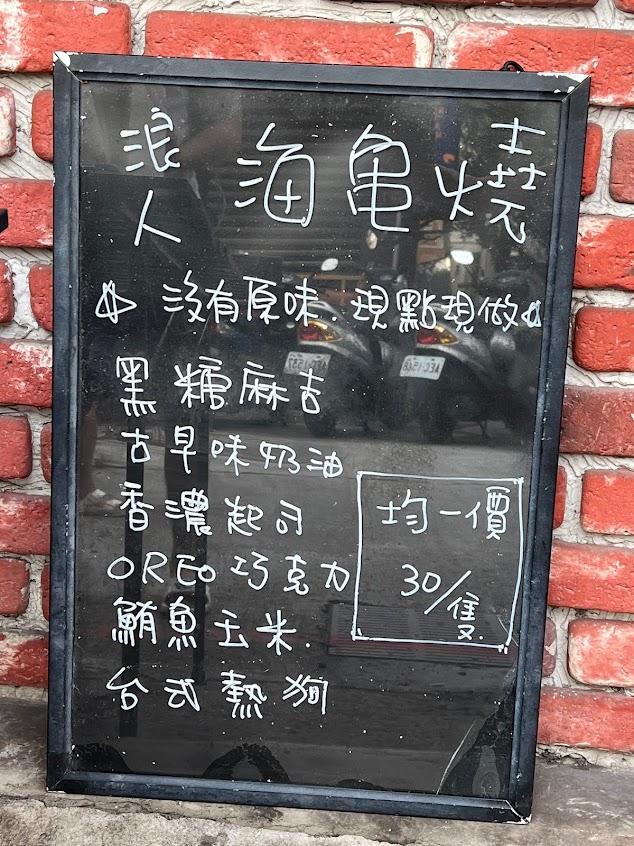 浪人 海亀燒
沒有原味．現點現做
黑糖麻吉
古早味奶油
香濃起司
OREO巧克力
鮪魚玉米.
台式熱狗
均一價
30/隻.